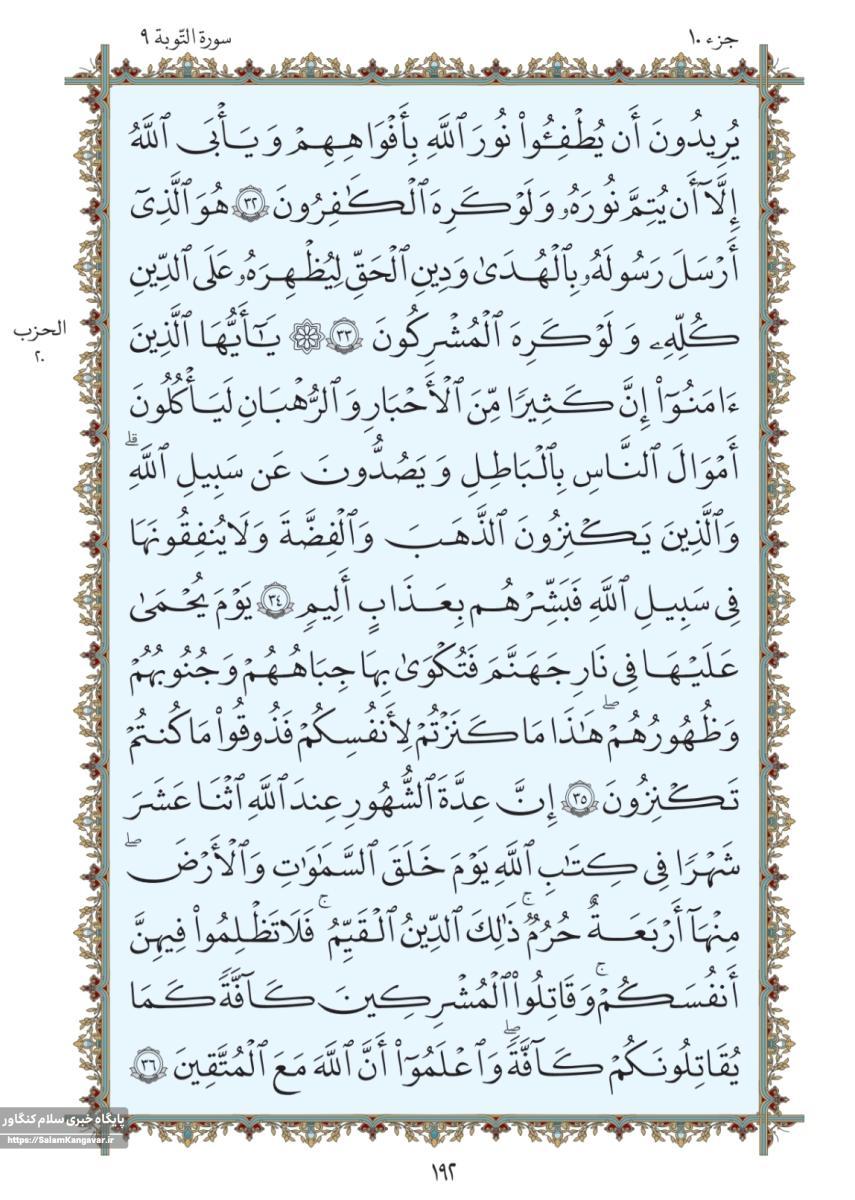 جزء ۱۰
سورة التّوبة ۹
يُرِيدُونَ أَن يُطْفِـُٔوا۟ نُورَ ٱللَّهِ بِأَفْوَٰهِهِمْ وَيَأْبَى ٱللَّهُ
إِلَّآ أَن يُتِمَّ نُورَهُۥ وَلَوْ كَرِهَ ٱلْكَٰفِرُونَ ۝٣٢ هُوَ ٱلَّذِىٓ
أَرْسَلَ رَسُولَهُۥ بِٱلْهُدَىٰ وَدِينِ ٱلْحَقِّ لِيُظْهِرَهُۥ عَلَى ٱلدِّينِ
كُلِّهِۦ وَلَوْ كَرِهَ ٱلْمُشْرِكُونَ ۝٣٣ ۞ يَٰٓأَيُّهَا ٱلَّذِينَ
ءَامَنُوٓا۟ إِنَّ كَثِيرًا مِّنَ ٱلْأَحْبَارِ وَٱلرُّهْبَانِ لَيَأْكُلُونَ
أَمْوَٰلَ ٱلنَّاسِ بِٱلْبَٰطِلِ وَيَصُدُّونَ عَن سَبِيلِ ٱللَّهِ ۗ
وَٱلَّذِينَ يَكْنِزُونَ ٱلذَّهَبَ وَٱلْفِضَّةَ وَلَا يُنفِقُونَهَا
فِى سَبِيلِ ٱللَّهِ فَبَشِّرْهُم بِعَذَابٍ أَلِيمٍ ۝٣٤ يَوْمَ يُحْمَىٰ
عَلَيْهَا فِى نَارِ جَهَنَّمَ فَتُكْوَىٰ بِهَا جِبَاهُهُمْ وَجُنُوبُهُمْ
وَظُهُورُهُمْ ۖ هَٰذَا مَا كَنَزْتُمْ لِأَنفُسِكُمْ فَذُوقُوا۟ مَا كُنتُمْ
تَكْنِزُونَ ۝٣٥ إِنَّ عِدَّةَ ٱلشُّهُورِ عِندَ ٱللَّهِ ٱثْنَا عَشَرَ
شَهْرًا فِى كِتَٰبِ ٱللَّهِ يَوْمَ خَلَقَ ٱلسَّمَٰوَٰتِ وَٱلْأَرْضَ ۖ
مِنْهَآ أَرْبَعَةٌ حُرُمٌ ۚ ذَٰلِكَ ٱلدِّينُ ٱلْقَيِّمُ ۚ فَلَا تَظْلِمُوا۟ فِيهِنَّ
أَنفُسَكُمْ ۚ وَقَٰتِلُوا۟ ٱلْمُشْرِكِينَ كَآفَّةً كَمَا
يُقَٰتِلُونَكُمْ كَآفَّةً ۖ وَٱعْلَمُوٓا۟ أَنَّ ٱللَّهَ مَعَ ٱلْمُتَّقِينَ ۝٣٦
الحزب
۲۰
پایگاه خبری سلام کنگاور
https://SalamKangavar.ir
۱۹۲